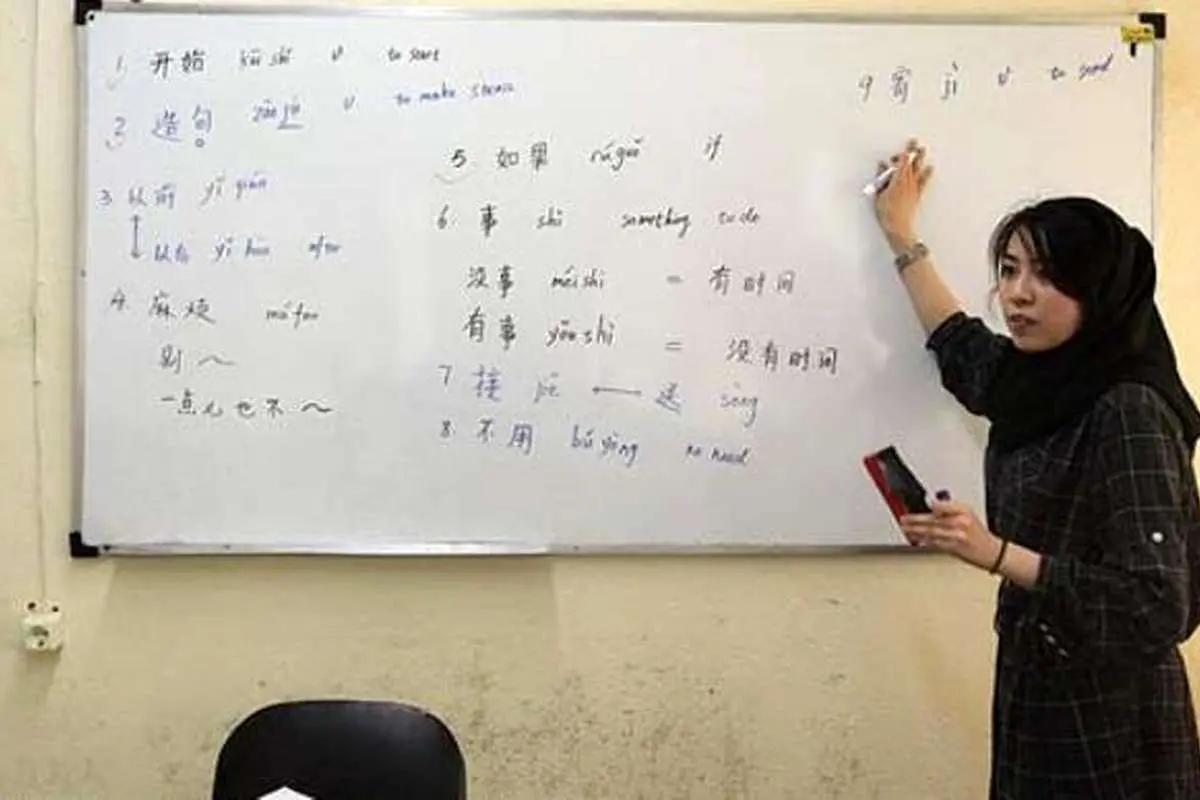 1 开始 kāi shǐ v to start
2 造句 zào jù v to make
3 以前 yǐ qián
以后 yǐ hòu after
4 麻烦 má fan
别～
一点儿也不～
5 如果 rúguǒ if
6 事 shì something to do
没事 méi shì = 有时间
有事 yǒu shì = 没有时间
7 接 jiē ⟵ 送 sòng
8 不用 bú yòng no need
9 寄 jì v to send